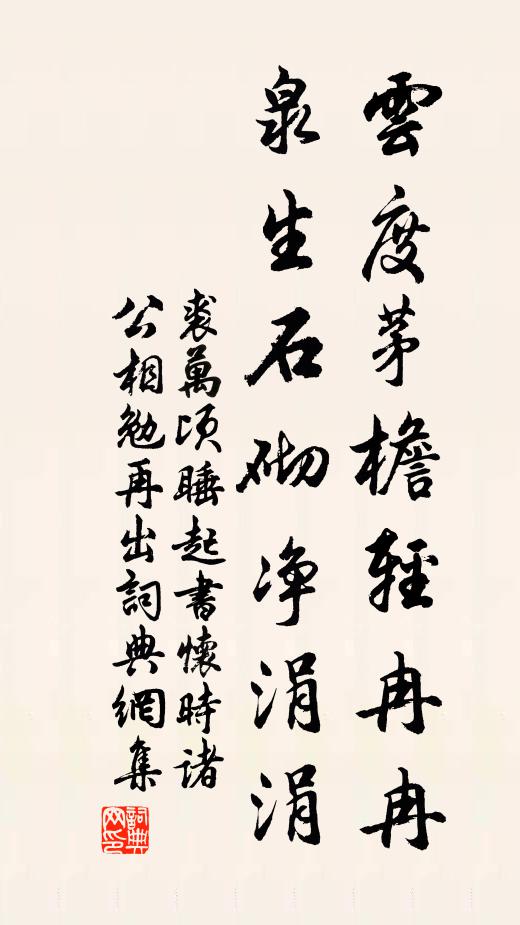 雲度茅檐輕冉冉
泉生石砌净涓涓
裘萬頃睡起書懷時諸
公相勉再出詞典網集
詞典
网印